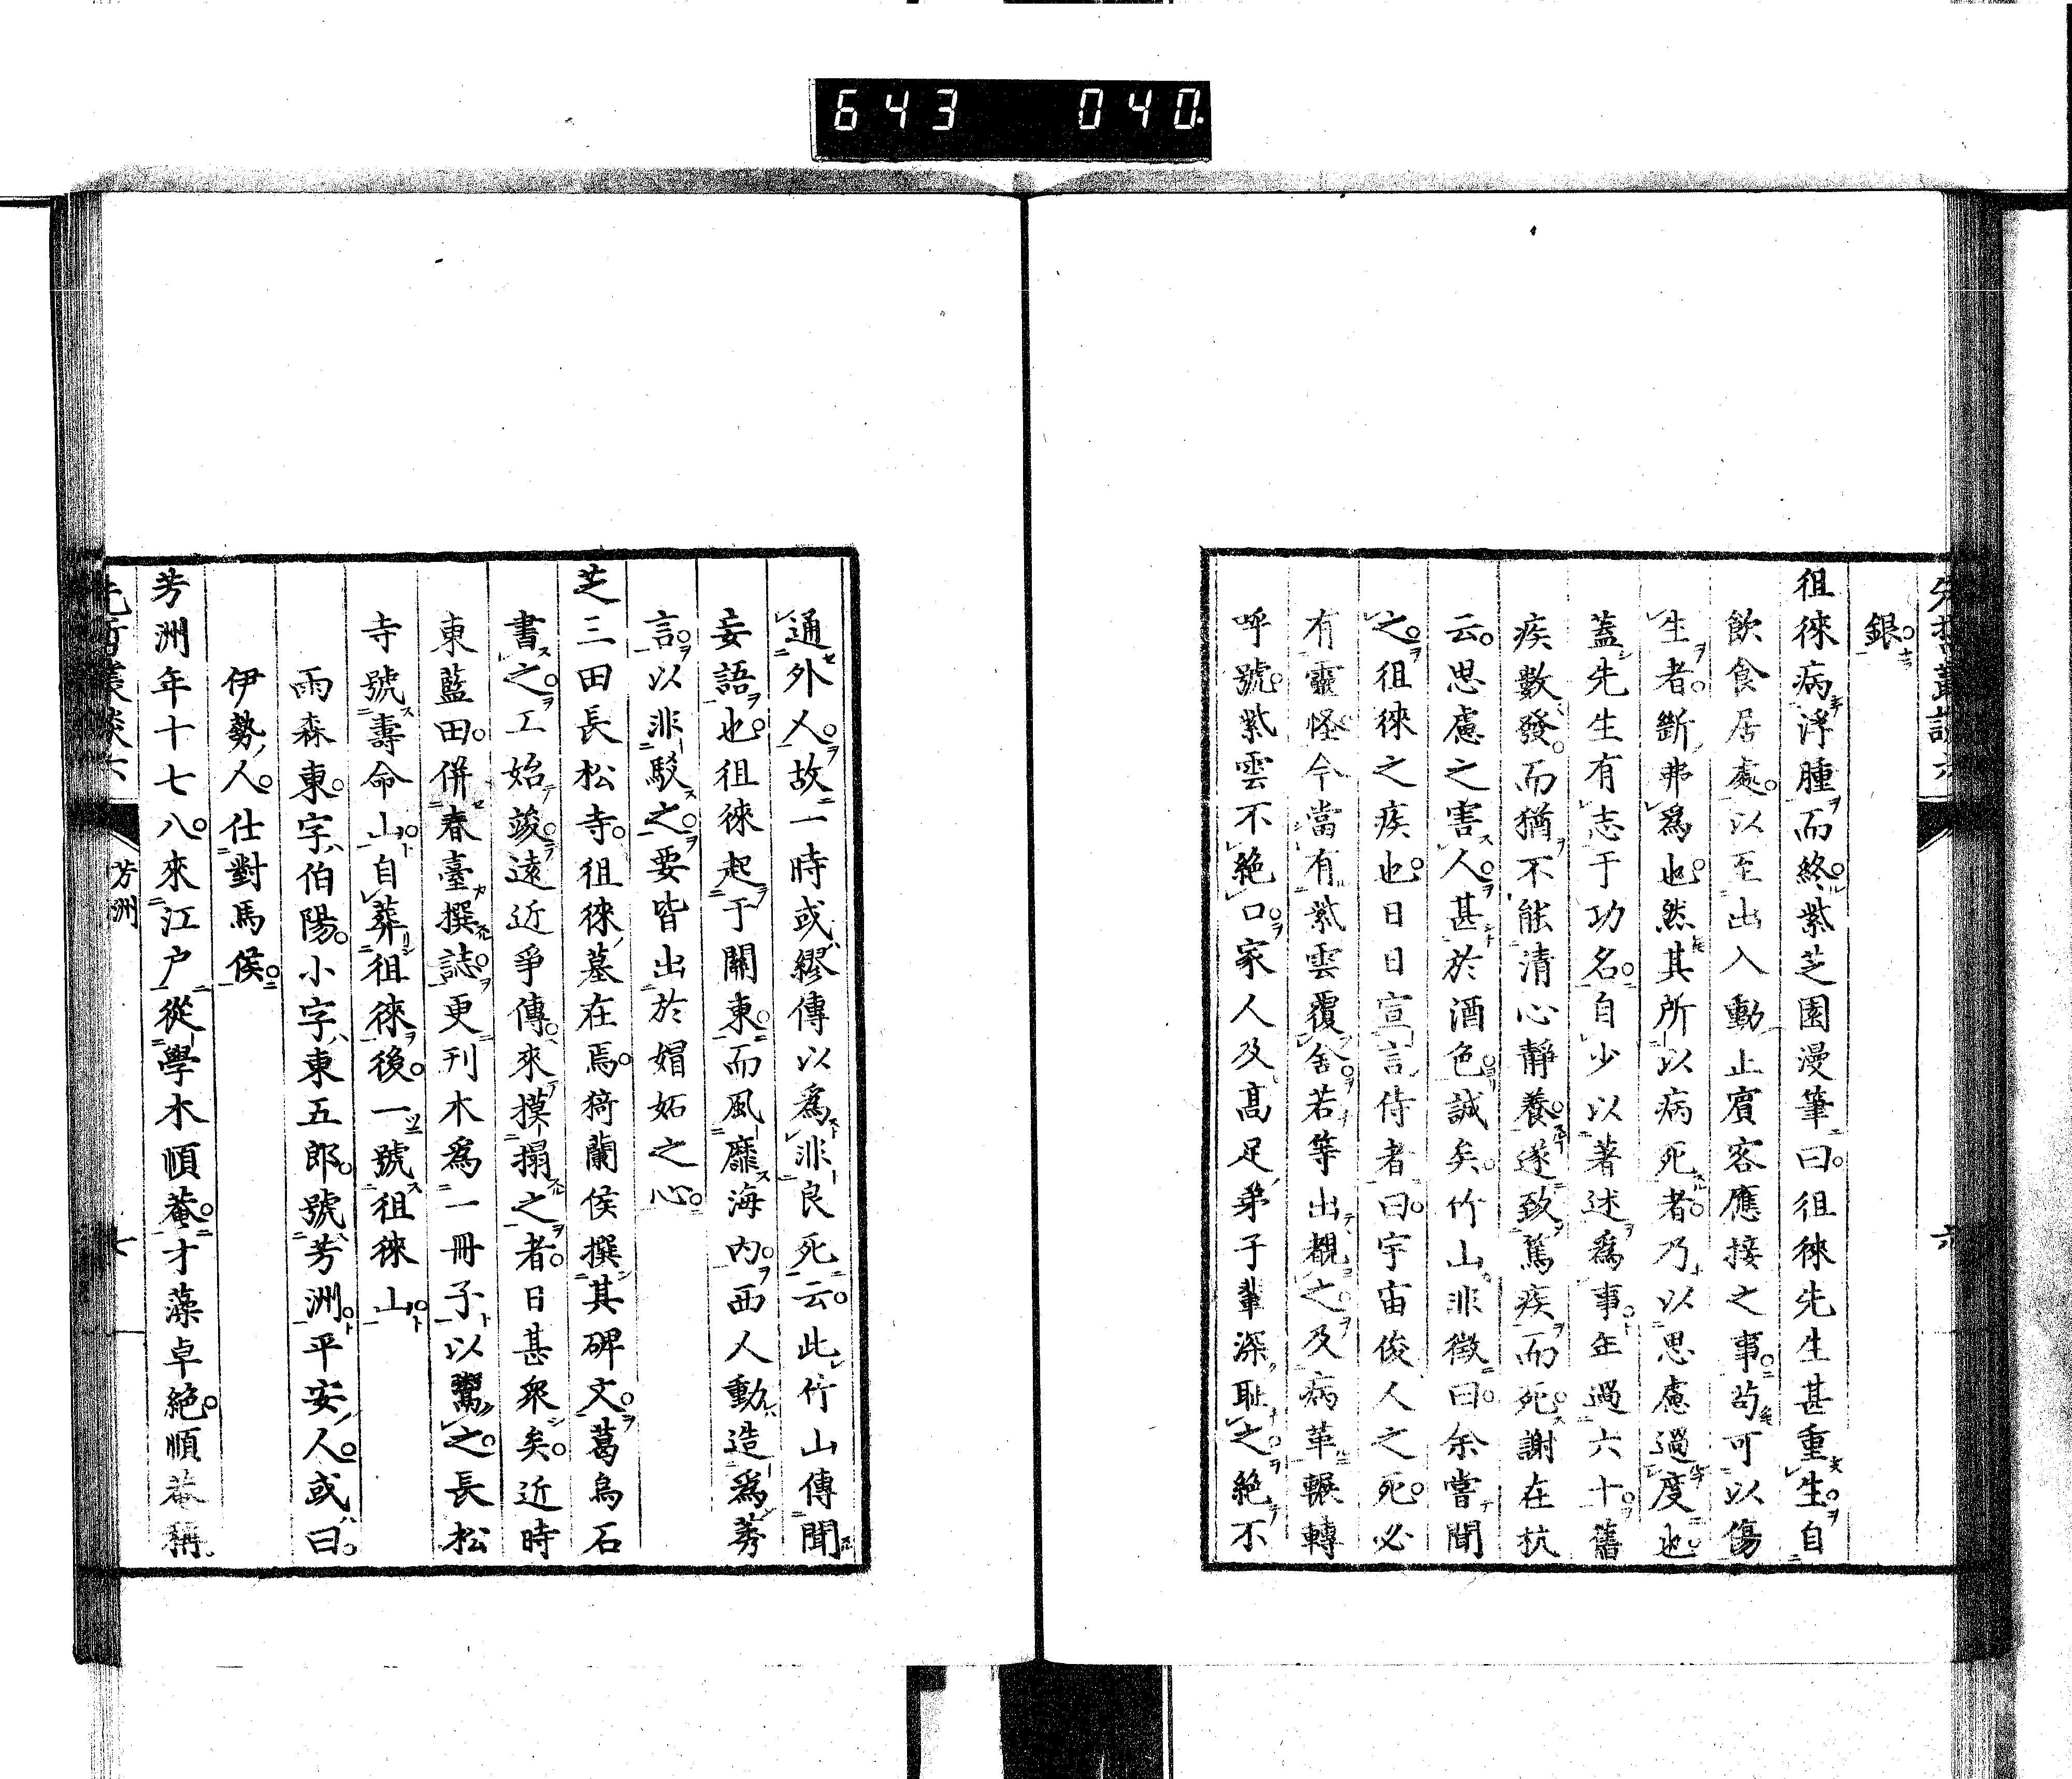 643 040.
先哲叢談六
六
銀
徂徠病浮腫而終紫芝園漫筆曰徂徠先生甚重生自
飲食居處以至出入動止賓客應接之事苟可以傷
生者斷弗爲也然其所以病死者乃以思慮過度也
蓋先生有志于功名自少以著述爲事年過六十舊
疾數發而猶不能清心靜養遂致篤疾而死謝在杭
云思慮之害人甚於酒色誠矣竹山非徵曰余嘗聞
之徂徠之疾也日日宣言侍者曰宇宙俊人之死必
有靈怪今當有紫雲覆舍若等出觀之及病革輾轉
呼號紫雲不絶口家人及高足弟子輩深耻之絶不
通外人故一時或繆傳以爲非良死云此竹山傳聞
妄語也徂徠起于關東而風靡海内西人動造爲莠
言以非駁之要皆出於媢妬之心
芝三田長松寺徂徠墓在焉猗蘭侯撰其碑文葛烏石
書之工始竣遠近爭傳來摸搨之者日甚衆矣近時
東藍田併春臺撰誌更刊木爲一冊子以鬻之長松
寺號壽命山自葬徂徠後一號徂徠山
雨森東字伯陽小字東五郎號芳洲平安人或曰
伊勢人仕對馬侯
芳洲年十七八來江戸從學木順菴才藻卓絶順菴稱
先哲叢談六
芳洲
七